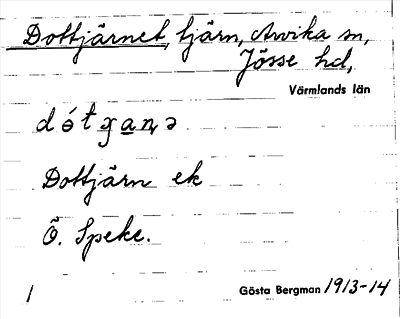 Dottjärnet, tjärn, Arvika sn,
Jösse hd,
Värmlands län
Dottjärn ek
Ö. Speke.
1
Gösta Bergman 1913-14